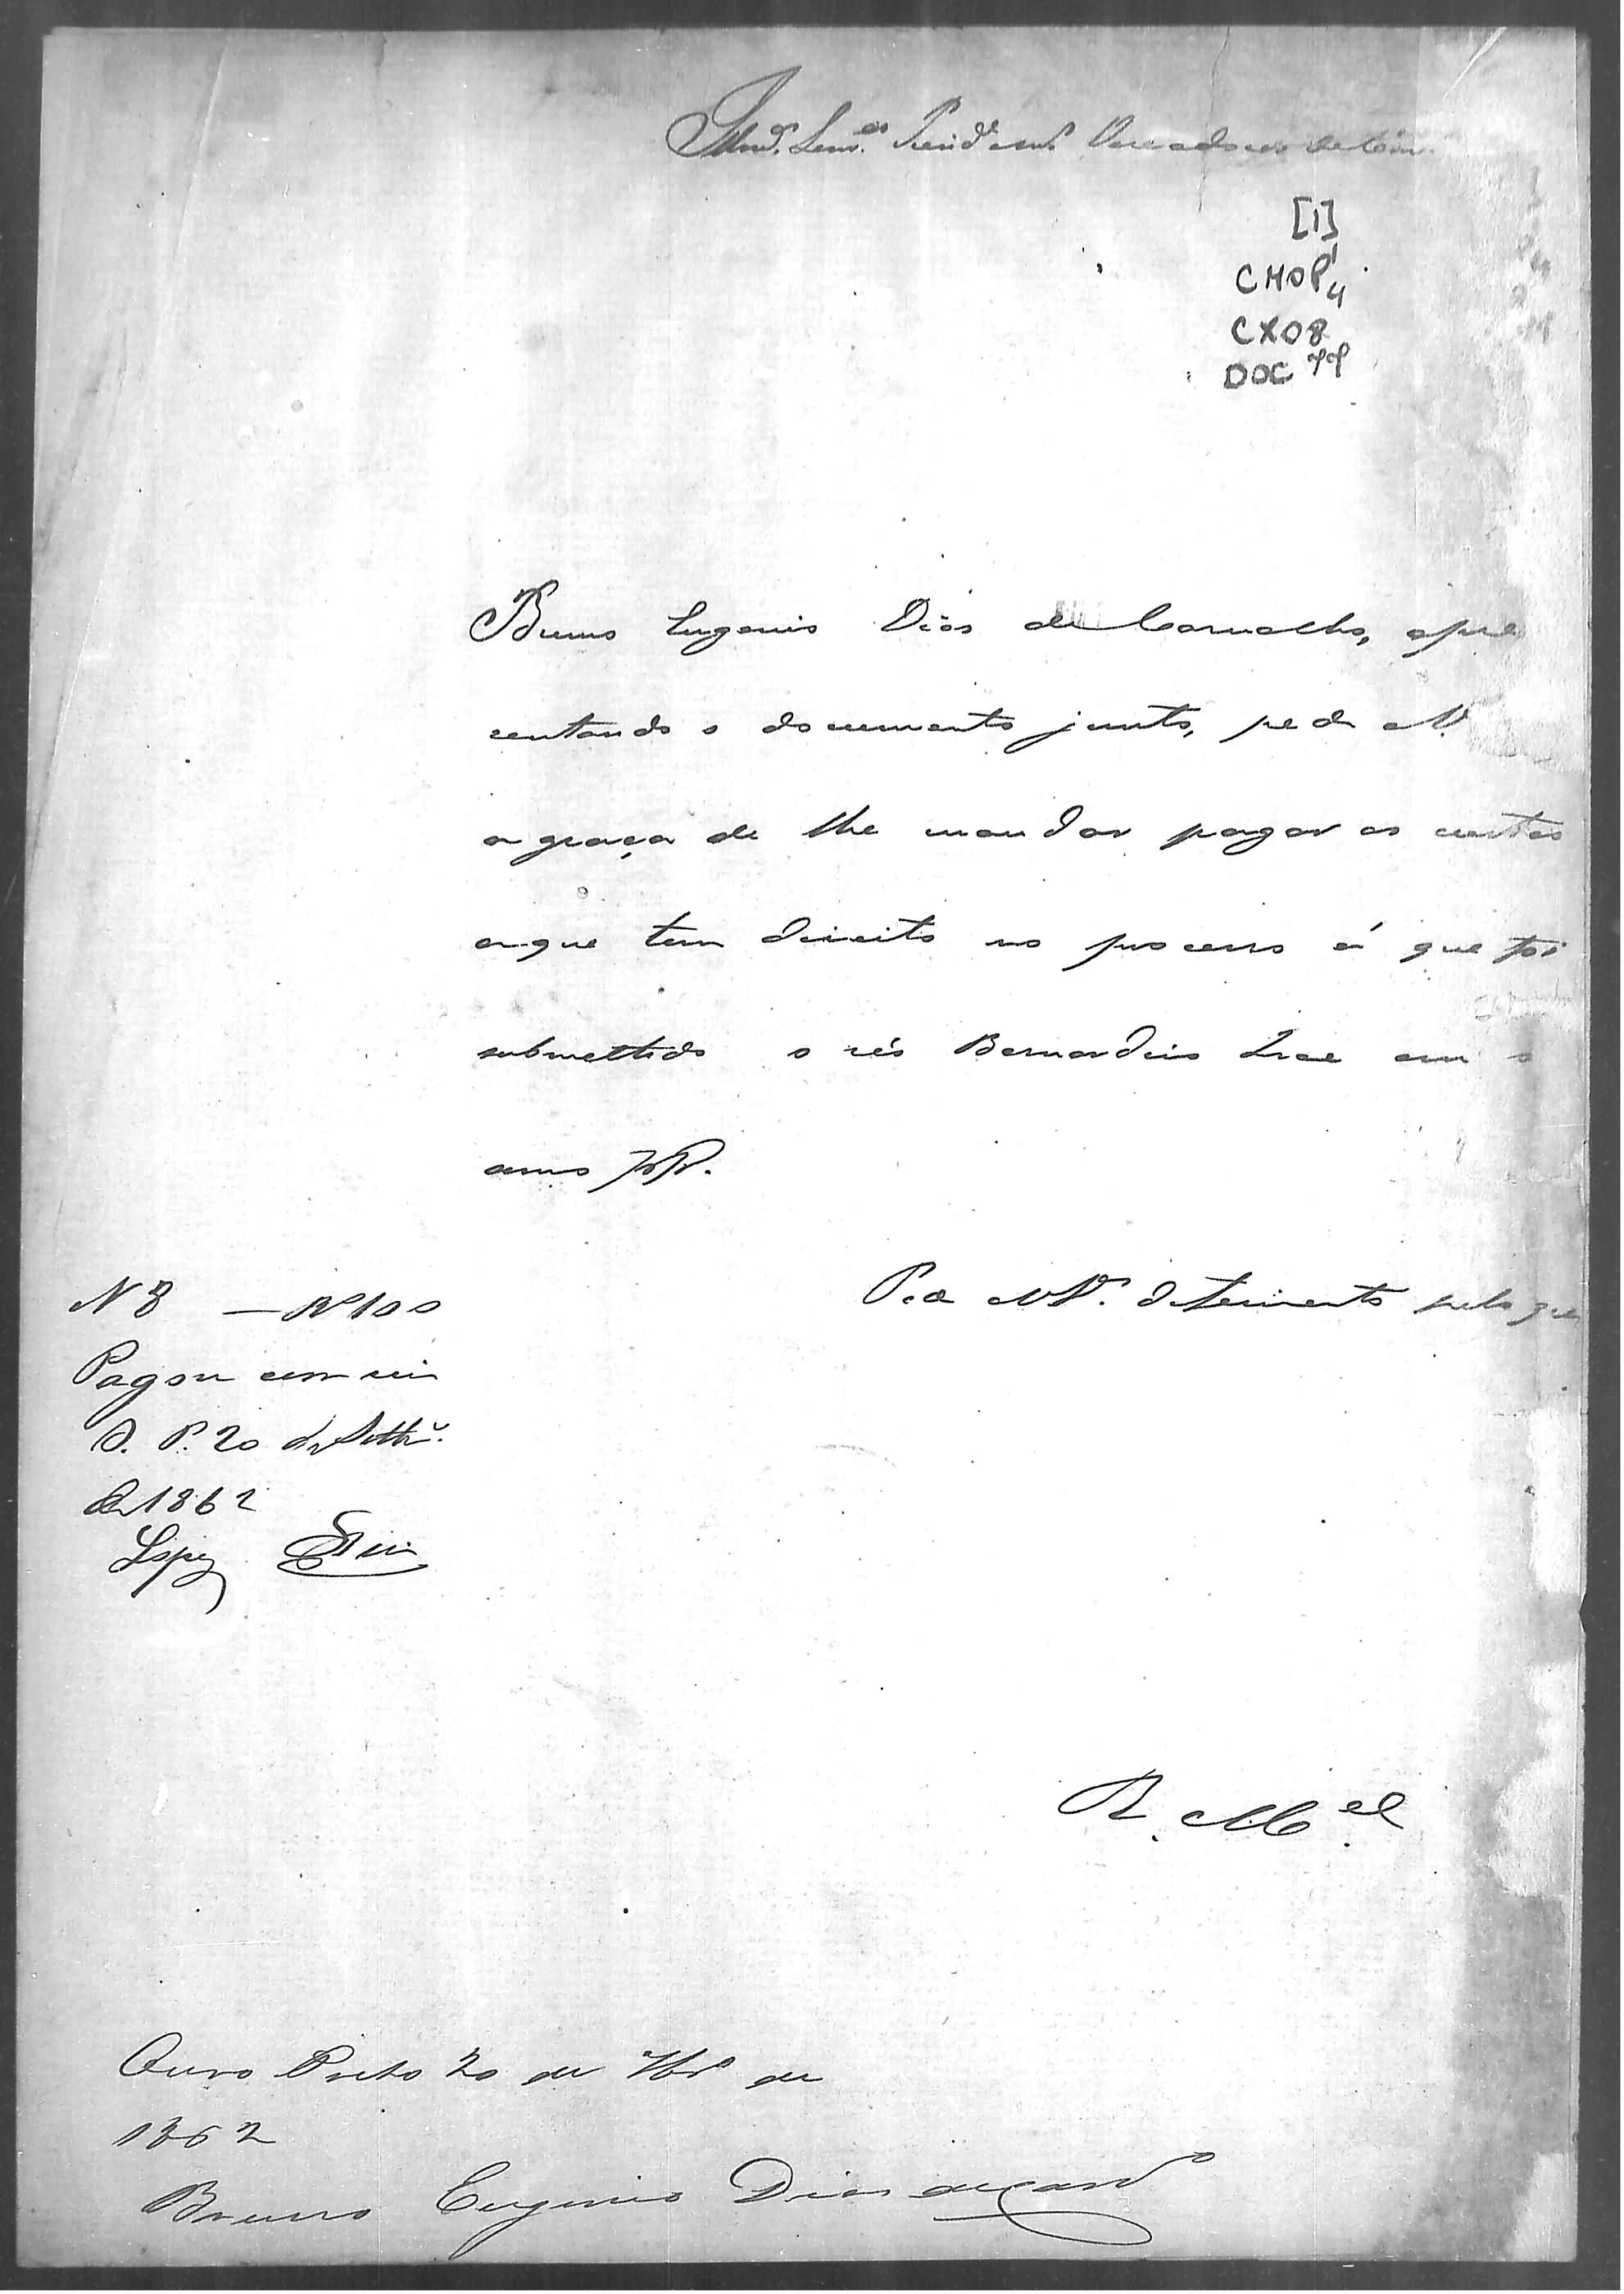 Illmos. Senres. Preside. e mais Vereadores da Cam.
[1]
CMOP 4
CX08
DOC 77
Bruno Eugenio Dias de Carvalho, apre
centando o documento junto, pede a V.
a graça de lhe mandar pagar as custas
a que tem direito no processo á que foi
submettido o réo Bernardino em o
anno pp.
P. a VV. deferimento pelo que
N 8 — Rs 100
Pagou cem reis
O. P. 20 de Settbro.
de 1862
Lopes
R. Mcê
Ouro Preto 20 de 7bro de
1862
Bruno Eugenio Dias de Carvo